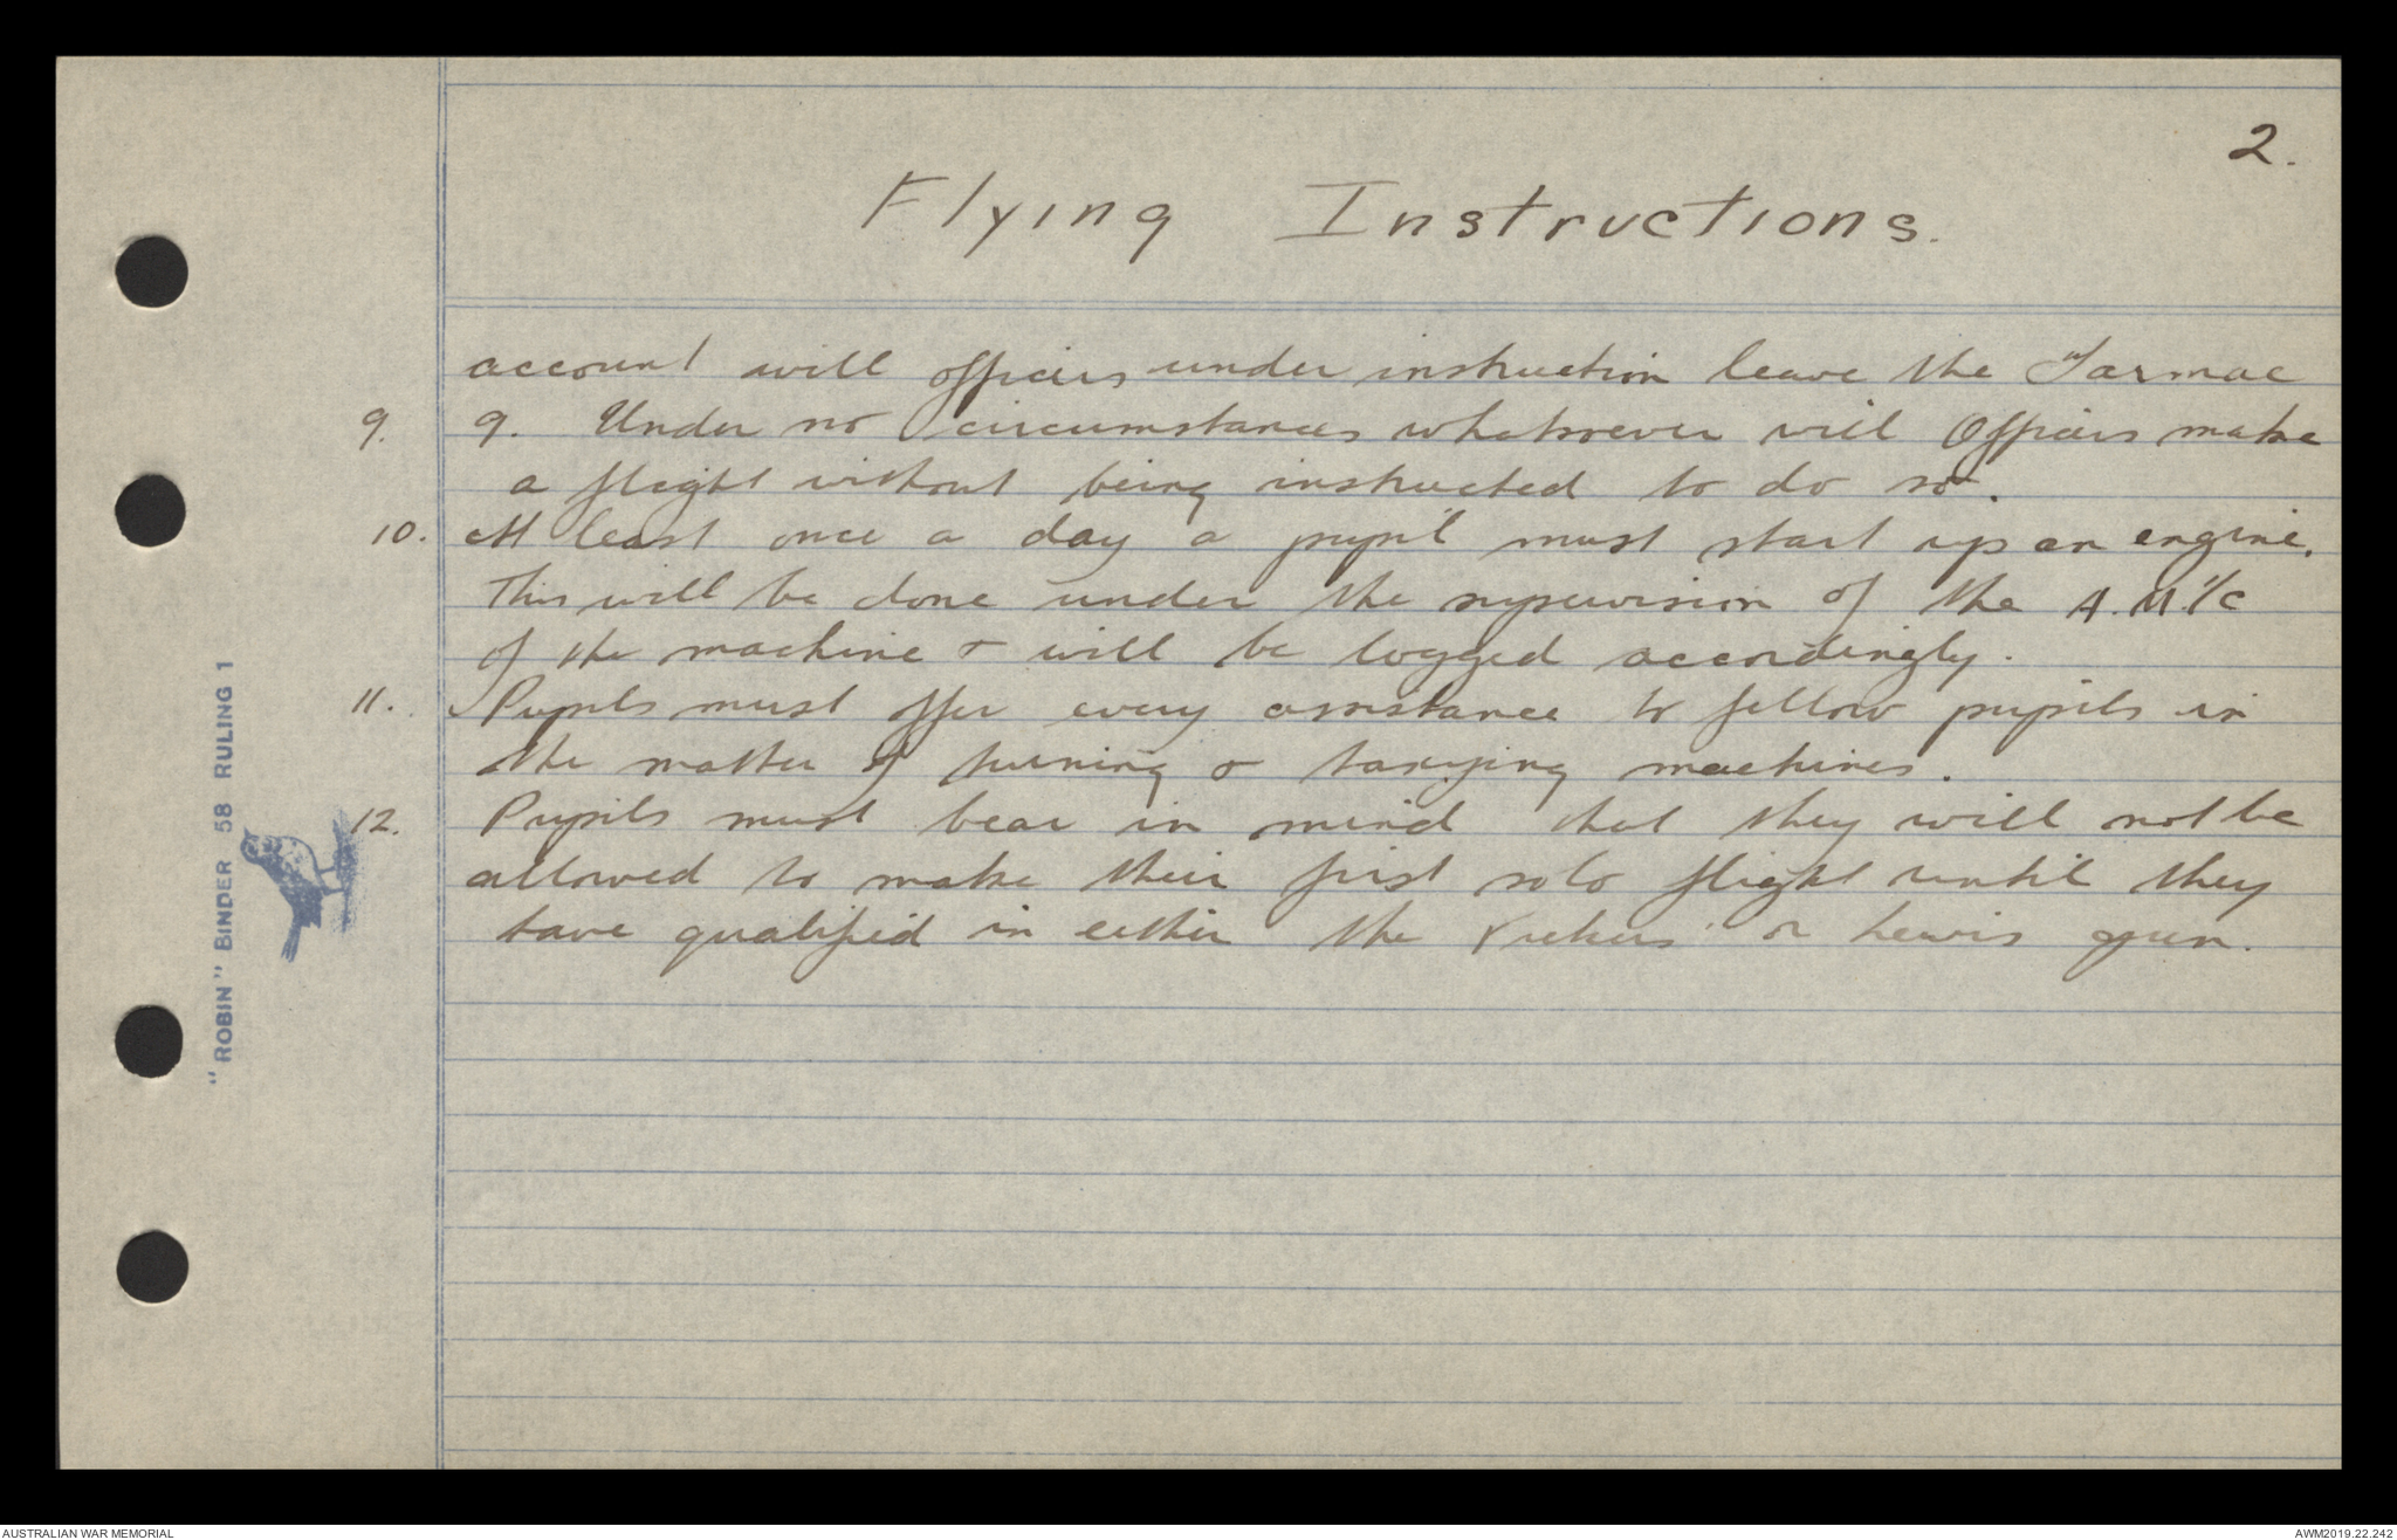 2.
Flying Instructions.
account will officers under instruction leave the Tarmac
9. 9. Under no circumstances whatsoever will Officers make
a flight without being instructed to do so.
10. At least once a day a pupil must start up an engine.
This will be done under the supervision of the A.M. i/c
of the machine & will be logged accordingly.
11. Pupils must offer every assistance to fellow pupils in
the matter of turning & taxying machines.
12. Pupils must bear in mind that they will not be
allowed to make their first solo flight until they
have qualified in either the Vickers or Lewis gun.
"ROBIN" BINDER 58 RULING 1
AUSTRALIAN WAR MEMORIAL
AWM2019.22.242